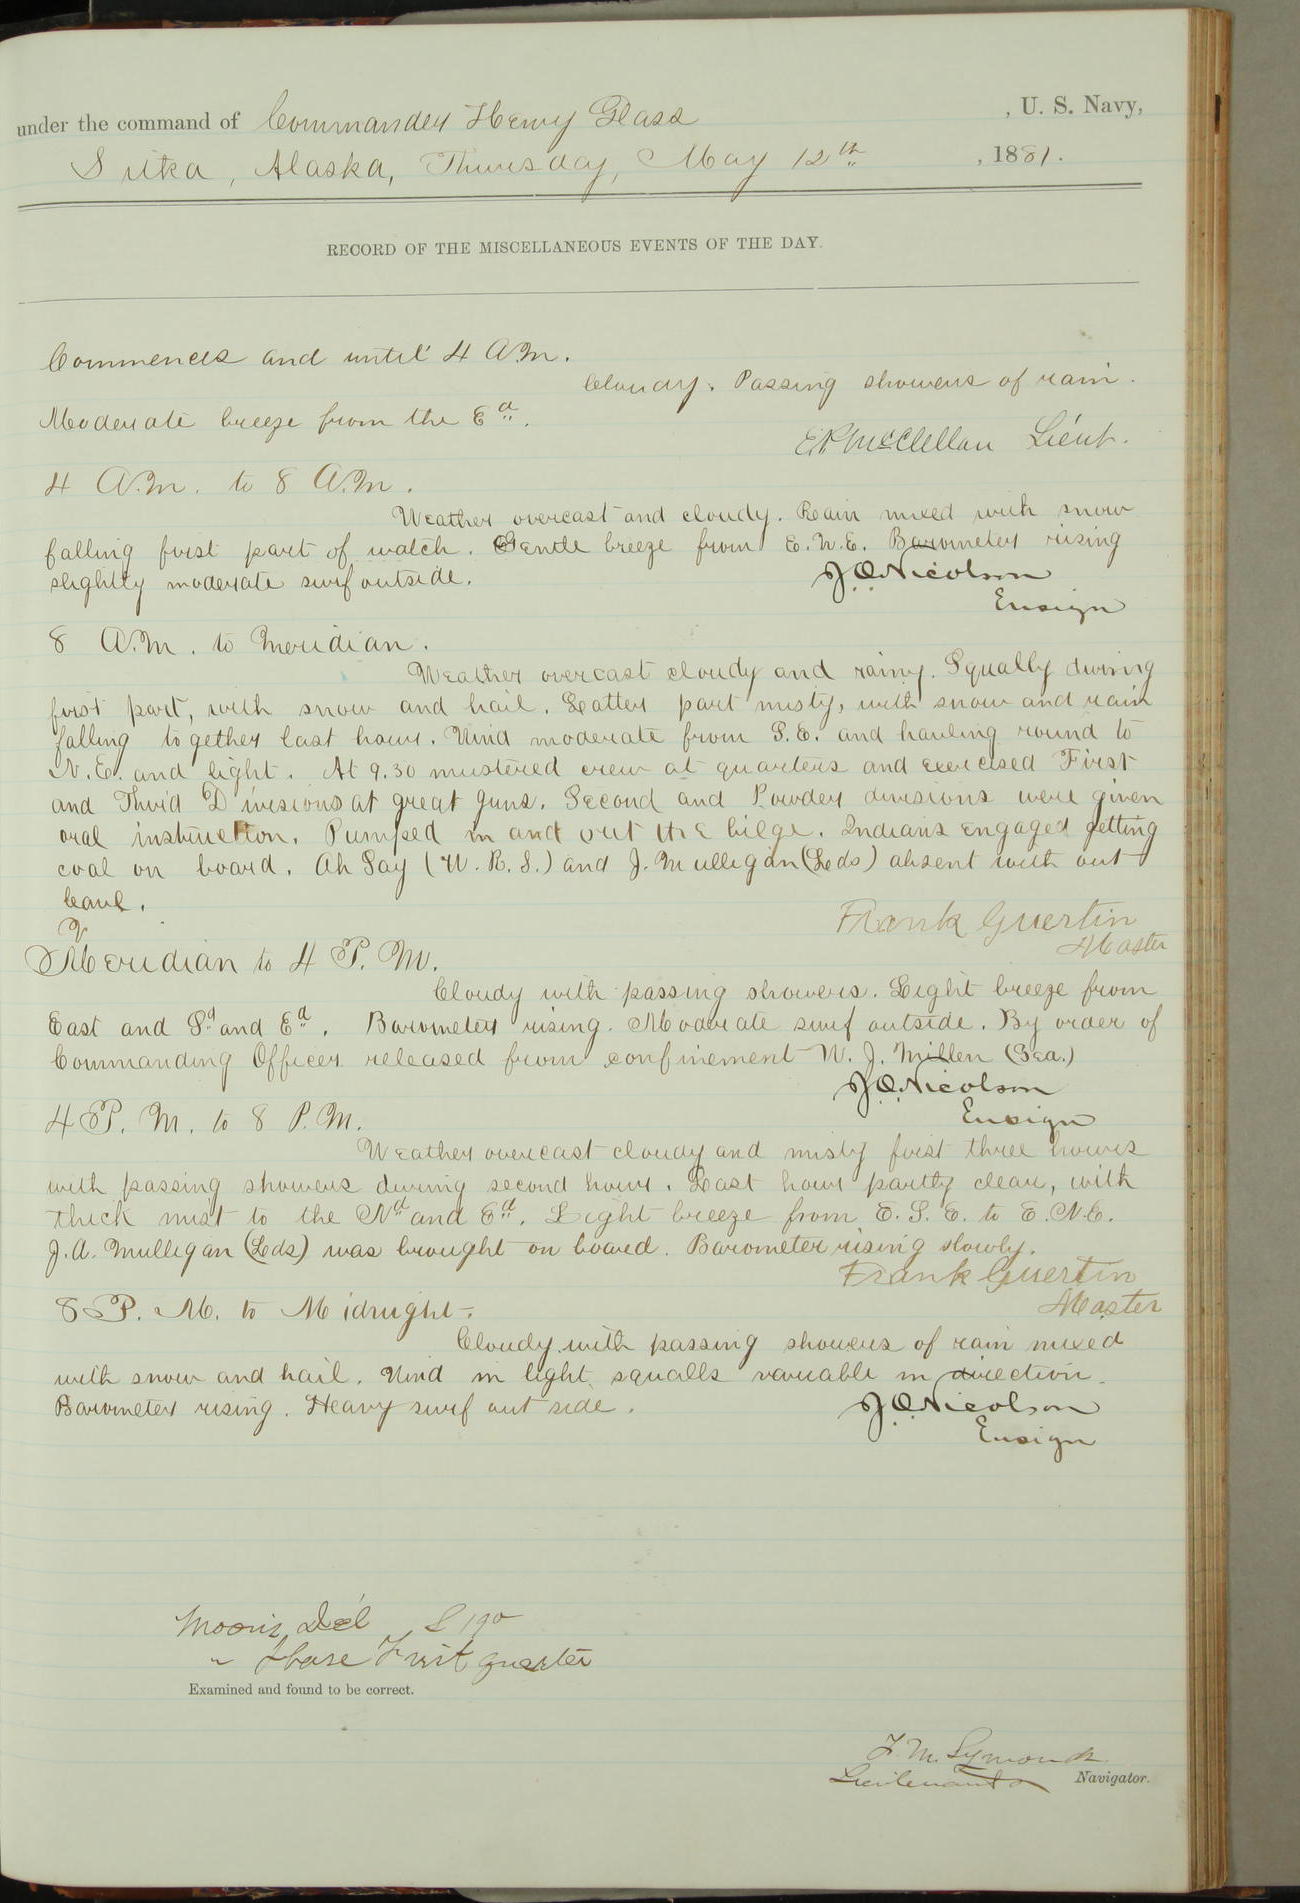 under the command of Commander Henry Glass , U. S. Navy,
Sitka, Alaska, Thursday, May 12th , 1881.
RECORD OF THE MISCELLANEOUS EVENTS OF THE DAY.
Commences and until 4 A.M.
Cloudy. Passing showers of rain.
Moderate breeze from the Ed.
E.P. McClellan Lieut.
4 A.M. to 8 A.M.
Weather overcast and cloudy. Rain mixed with snow
falling first part of watch. Gentle breeze from E.N.E. Barometer rising
slightly moderate surf outside.
J.O. Nicolson
Ensign
8 A.M. to Meridian.
Weather overcast cloudy and rainy. Squally during
first part, with snow and hail. Latter part misty, with snow and rain
falling together last hour. Wind moderate from S.E. and hauling round to
N.E. and light. At 9.30 mustered crew at quarters and exercised First
and Third Divisions at great guns. Second and Powder divisions were given
oral instruction. Pumped in and out the bilge. Indians engaged getting
coal on board. Ah Say (W.R.S.) and J. Mulligan (Lds) absent with out
leave.
Frank Guertin
Master
Meridian to 4 P.M.
Cloudy with passing showers. Light breeze from
East and Sd and Ed. Barometer rising. Moderate surf outside. By order of
Commanding Officer released from confinement W. J. Millen (Sea.)
J.O. Nicolson
Ensign
4 P.M. to 8 P.M.
Weather overcast cloudy and misty first three hours
with passing showers during second hour. Last hour partly clear, with
thick mist to the Nd and Ed. Light breeze from E.S.E. to E.N.E.
J.A. Mulligan (Lds) was brought on board. Barometer rising slowly.
Frank Guertin
Master
8 P.M. to Midnight.
Cloudy with passing showers of rain mixed
with snow and hail. Wind in light squalls variable in direction.
Barometer rising. Heavy surf out side.
J.O. Nicolson
Ensign
Moon's Decl
" Phase First quarter
Examined and found to be correct.
F. M. Symonds
Lieutenant Navigator.